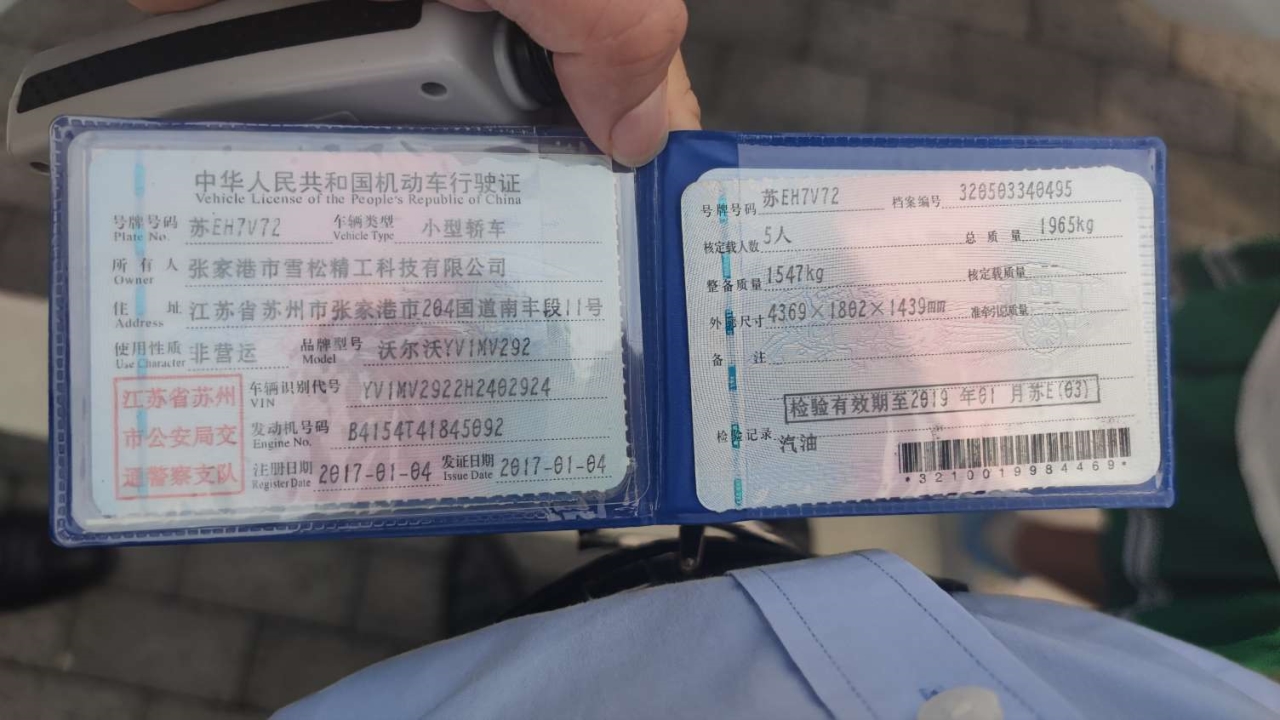 中华人民共和国机动车行驶证
Vehicle License of the People's Republic of China
号牌号码 苏EH7V72 车辆类型 小型轿车
Plate No. Vehicle Type
所有人 张家港市雪松精工科技有限公司
Owner
住址 江苏省苏州市张家港市204国道南丰段11号
Address
使用性质 非营运 品牌型号 沃尔沃YV1MV292
Use Character Model
江苏省苏州
市公安局交
通警察支队
车辆识别代号 YV1MV2922H2402924
VIN
发动机号码 B4154T41845092
Engine No.
注册日期 2017-01-04 发证日期 2017-01-04
Register Date Issue Date
号牌号码 苏EH7V72 档案编号 320503340495
核定载人数 5人 总质量 1965kg
整备质量 1547kg 核定载质量 --
外廓尺寸 4369×1802×1439mm 准牵引总质量 --
备注
检验有效期至2019年01月苏E(03)
检验记录 汽油
*3210019984469*